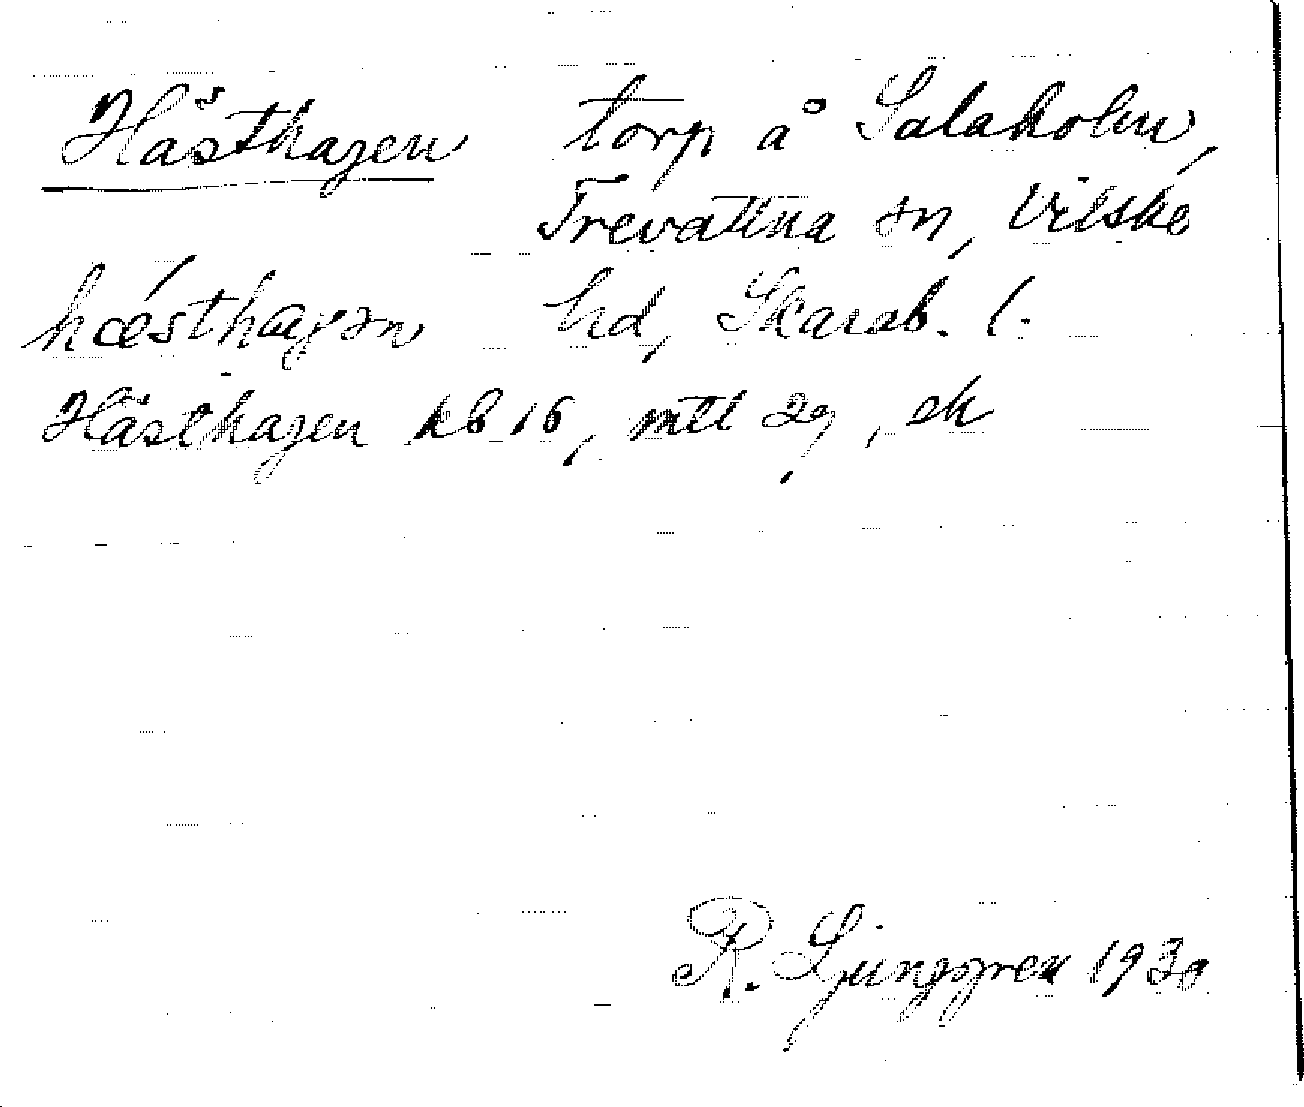 Hästhagen torp å Salaholm,
Trevattna sn, Vilske
hæsthagən hd, Skarab. l.
Hästhagen kb 16, mtl 29, ek
R. Ljunggren 1930